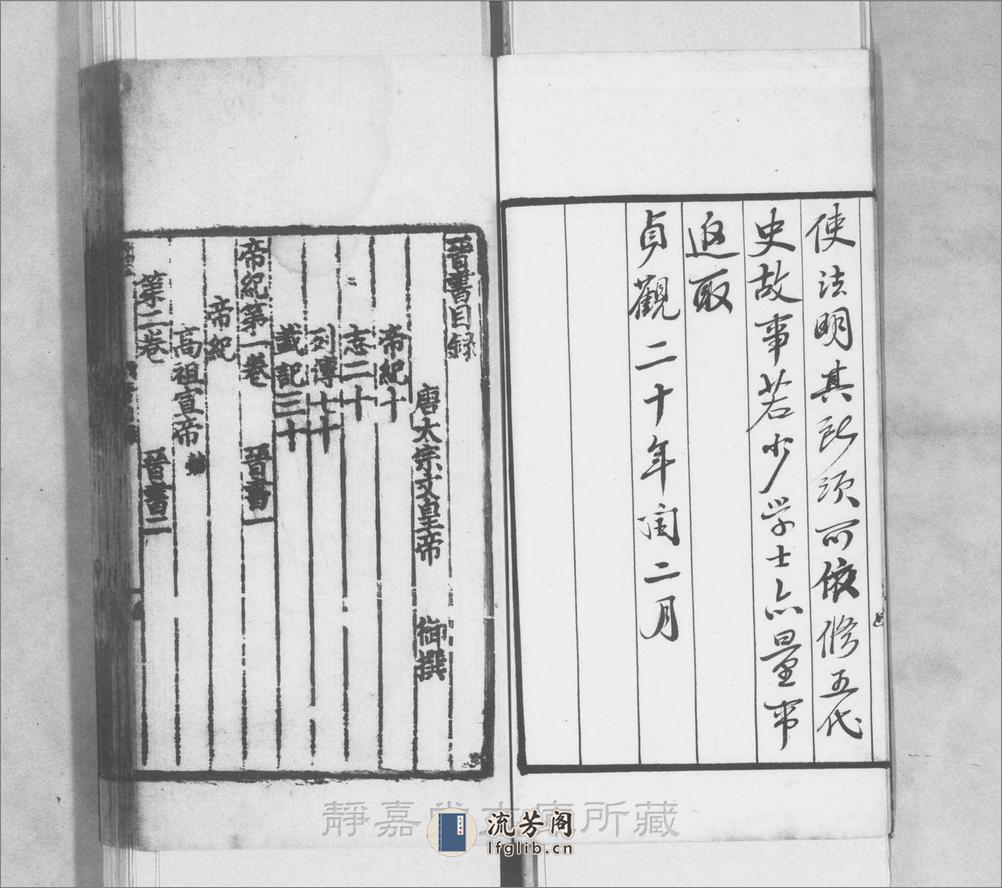 使法明其所須可依修五代
史故事若少學士亦量事
追取
貞觀二十年閏二月
晉書目録
唐太宗文皇帝 御撰
帝紀十
志二十
列傳七十
載記三十
帝紀第一卷 晉書一
帝紀
高祖宣帝 懿
第二卷 晉書二
靜嘉堂文庫所藏
流芳阁
lfglib.cn